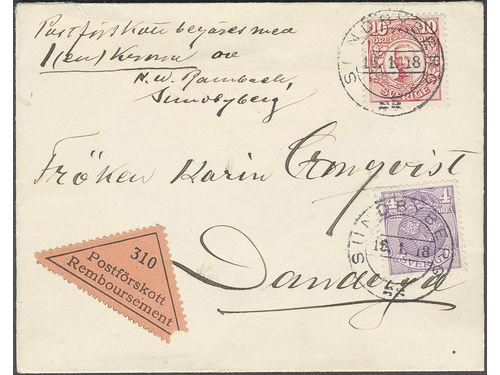 Postförskott begäres med
1 (en) Krona öre
N.W. Rambach,
Sundbyberg,
10 10
SVERIGE
SUNDBYBERG
18.1.18
Fröken Karin Cronqvist
4 4
SVERIGE
SUNDBYBERG
18.1.18
Danderyd
310
Postförskott
Remboursement